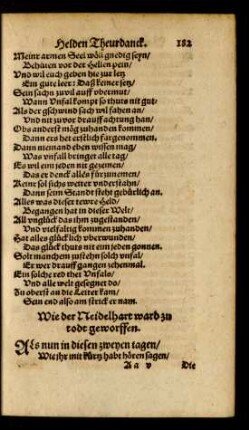 Helden Theurdanck. 182
Meinr armen Seel wöll gnedig seyn/
Behüten vor der Hellen pein/
Und wil euch geben hie zur letz
Ein gute leer: Daß keiner setz
Sein sachn zuvil auff obermut/
Wann Unfal kompt so thuts nit gut/
Als der gschwind sach wil fahen an/
Und nit zuvor drauff achtung han/
Obs anderst mög zuhanden kommen/
Dann ers hat erstlich fürgenommen.
Dann niemand eben wissen mag/
Was unfall bringet alle tag/
Es wil ein jeden nit gezemen/
Das er denck alles fürzunemen/
Keinr sol sichs weiter understahn/
Dann seim Standt steht gebürlich an.
Alles was dieser tewre Held/
Begangen hat in dieser Welt/
All unglück das ihm zugestanden/
Und vielfaltig kommen zuhanden/
Hat alles glücklich uberwunden/
Das glück thuts nit eim jeden gonnen.
Solt manchem zustehn solch unfal/
Er wer drauff gangen zehenmal.
Ein solche red thet Unfalo/
Und alle welt gesegnet do/
Zu oberst an die Letter kam/
Sein end also am strick er nam.
Wie der Neidelhart ward zu
todt geworffen.
Als nun in diesen zweyen tagen/
Wie ihr mit kürtz habt hören sagen/
Aa v Die